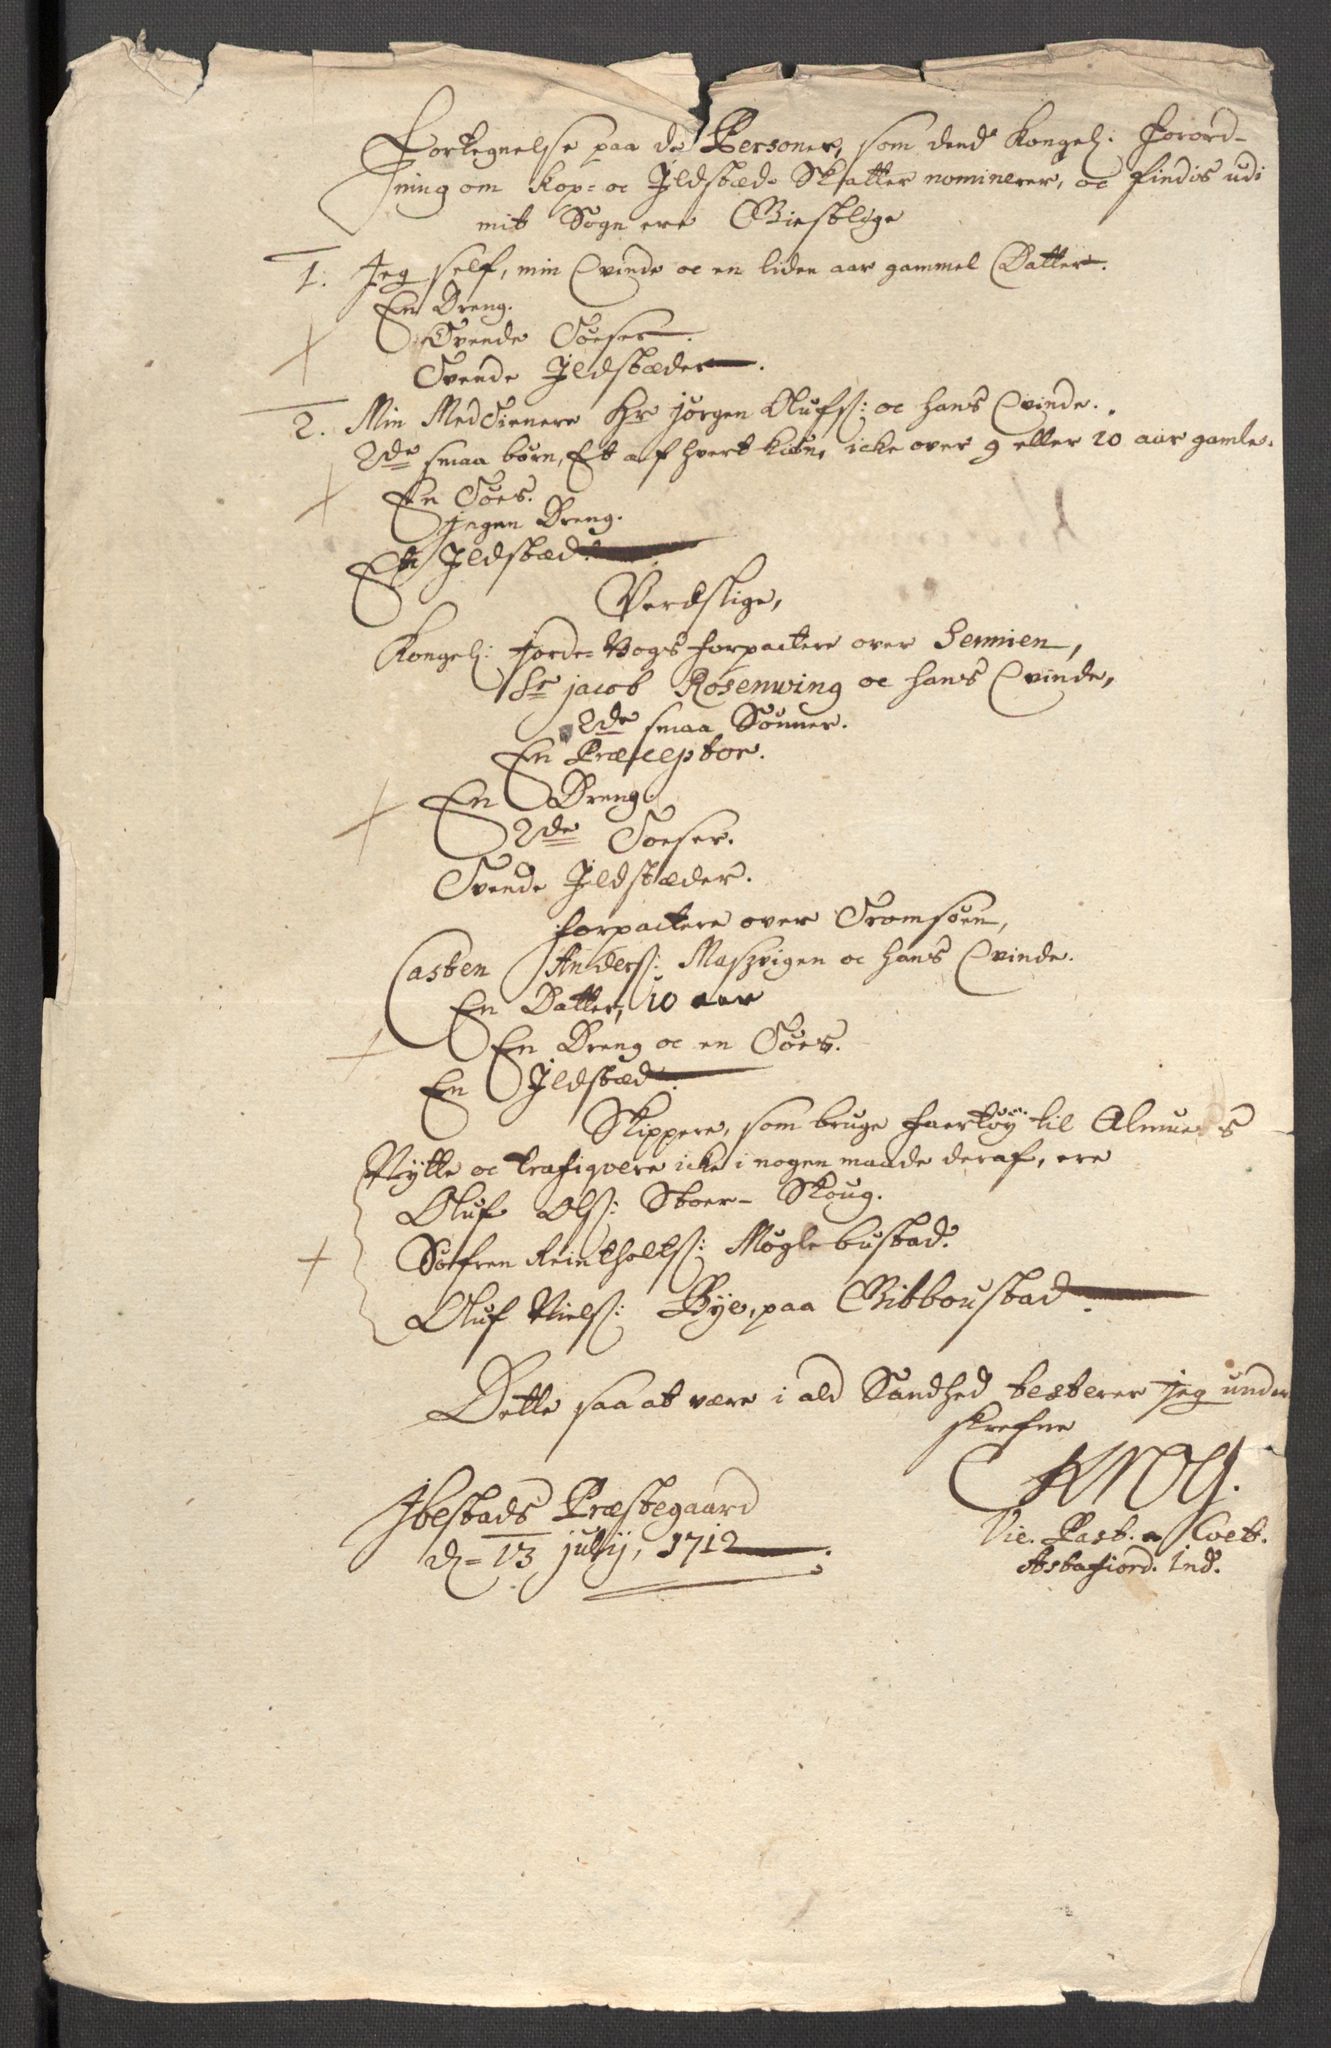 Fortegnelse paa de Personer, som dend Kongel: Forord-
ning om Kop- oc Ildstæd- Skatter nominerer, oc findis udi
mit Sogn ere Giestlige
1. Jeg self, min Qvinde oc en liden aar gammel Datter.
En Dreng.
Tvende Tøeser.
Tvende Ildstæder.
2. Min Medtienere Hr Jørgen Olufs: oc hans Qvinde.
2de smaa børn, Et af hvert kiøn, icke over 9 eller 10 aar gamle.
En Tøes.
Ingen Dreng.
Et Ildstæd.
Verdslige,
Kongel: Jorde-Bogs forpactere over Sennien,
Sr Jacob Rosenwing oc hans Qvinde,
2de smaa Sønner.
En Præceptor.
En Dreng.
2de Tøeser.
Tvende Ildstæder.
forpactere over Tromsøen,
Casten Anders: Maszvigen oc hans Qvinde.
En Datter, 10 aar
En Dreng oc en Tøes.
En Ildstæd.
Skippere, som bruge faertøÿ til Almuens
Nytte oc trafiqvere icke i nogen maade deraf, ere
Oluf Ols: Stoer-Skoug.
Søfren Reintholts: Møglebustad.
Oluf Niels: Bye, paa Gibboustad.
Dette saa at være i ald Sandhed testerer jeg under
skrefne
Krog.
Ibestads Præstegaard
d- 13 julij, 1712
Vic. Past. Coet.
Astafiord. Ind.